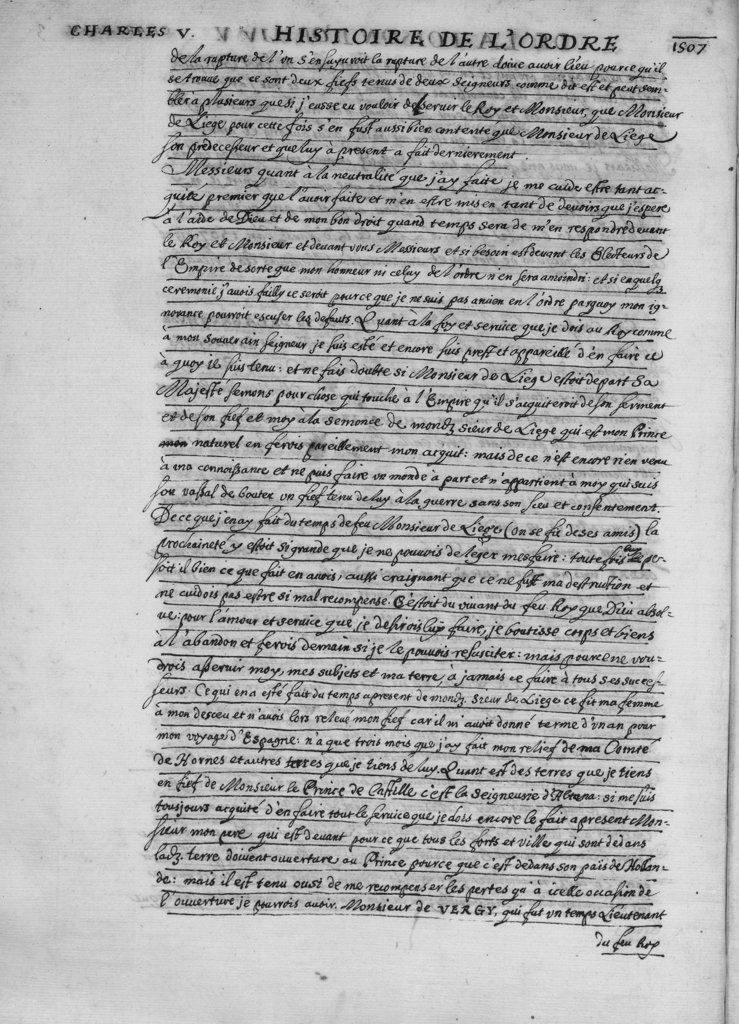 CHARLES V. HISTOIRE DE L'ORDRE 1507
de la rapture de l'un s'ensuyuroit la rapture de l'autre doiue auoir lieu pource qu'il
se trouue que ce sont deux fiefs tenus de deux Seigneurs comme dit est et peut sem-
bler à plusieurs que si j'eusse eu vouloir deseruir le Roy et Monsieur, que Monsieur
de Liege pour cette fois s'en fust aussi bien contenté que Monsieur de Liege
son predecesseur et que luy à present a fait dernierement.
Messieurs quant à la neutralité que j'ay faite je me cuide estre tant ac-
quité premier que l'auoir faite et m'en estre mis en tant de devoirs que j'espere
à l'aide de Dieu et de mon bon droit quand temps sera de m'en respondre deuant
le Roy et Monsieur et deuant vous Messieurs et si besoin est deuant les Electeurs de
l'Empire de sorte que mon honneur ni celuy de l'ordre n'en sera amoindri: et si en quelq
ceremonie j'auois failly ce seroit pource que je ne suis pas ancien en l'ordre parquoy mon ig-
norance pourroit escuser les defauts. Quant à la foy et service que je dois au Roy comme
à mon Souuerain Seigneur je suis esté et encore suis prest et appareillé d'en faire ce
à quoy je suis tenu: et ne fais doubte si Monsieur de Liege estoit de part Sa
Majesté semons pour chose qui touche à l'Empire qu'il s'acquiteroit de son serment
et de son fief et moy à la semonce de mondz sieur de Liege qui est mon Prince
naturel en ferois pareillement mon acquit: mais de ce n'est encore rien venu
à ma connoissance et ne puis faire un monde à part et n'appartient à moy qui suis
son vassal de bouter un fief tenu de luy à la guerre sans son sceu et consentement.
De ce que j'en ay fait du temps de feu Monsieur de Liege (on se fie de ses amis) la
prochaineté y estoit si grande que je ne pouuois de leger mesfaire: toutefois luy pe-
soit il bien ce que fait en auois: aussi craignant que ce ne fust ma destruction et
ne cuidois pas estre si mal recompensé. C'estoit du viuant du feu Roy que Dieu absol-
ue: pour l'amour et service que je desirois luy faire, je boutisse corps et biens
à l'abandon et ferois demain si je le pouuois resusciter: mais pource ne vou-
drois asseruir moy, mes subjets et ma terre à jamais ce faire à tous ses succes-
seurs. Ce qui en a esté fait du temps apresent de mondz. sieur de Liege ce fit ma femme
à mon desceu et n'auois lors releué mon fief car il m'auoit donné terme d'un an pour
mon voyage d'Espagne: n'a que trois mois que j'ay fait mon relief de ma Comté
de Hornes et autres terres que je tiens de luy. Quant est des terres que je tiens
en fief de Monsieur le Prince de Castille c'est la Seigneurie d'Altena: si me suis
tousjours acquité d'en faire tout le service que je dois encore le fait apresent Mon-
sieur mon pere qui est deuant pour ce que tous les forts et villes qui sont dedans
ladz. terre doiuent ouuerture au Prince pource que c'est dedans son païs de Hollan-
de: mais il est tenu ausi de me recompenser les pertes qu'à icelle occasion de
l'ouuerture je pourrois auoir. Monsieur de VERGY, qui fut un temps Lieutenant
du feu Roy